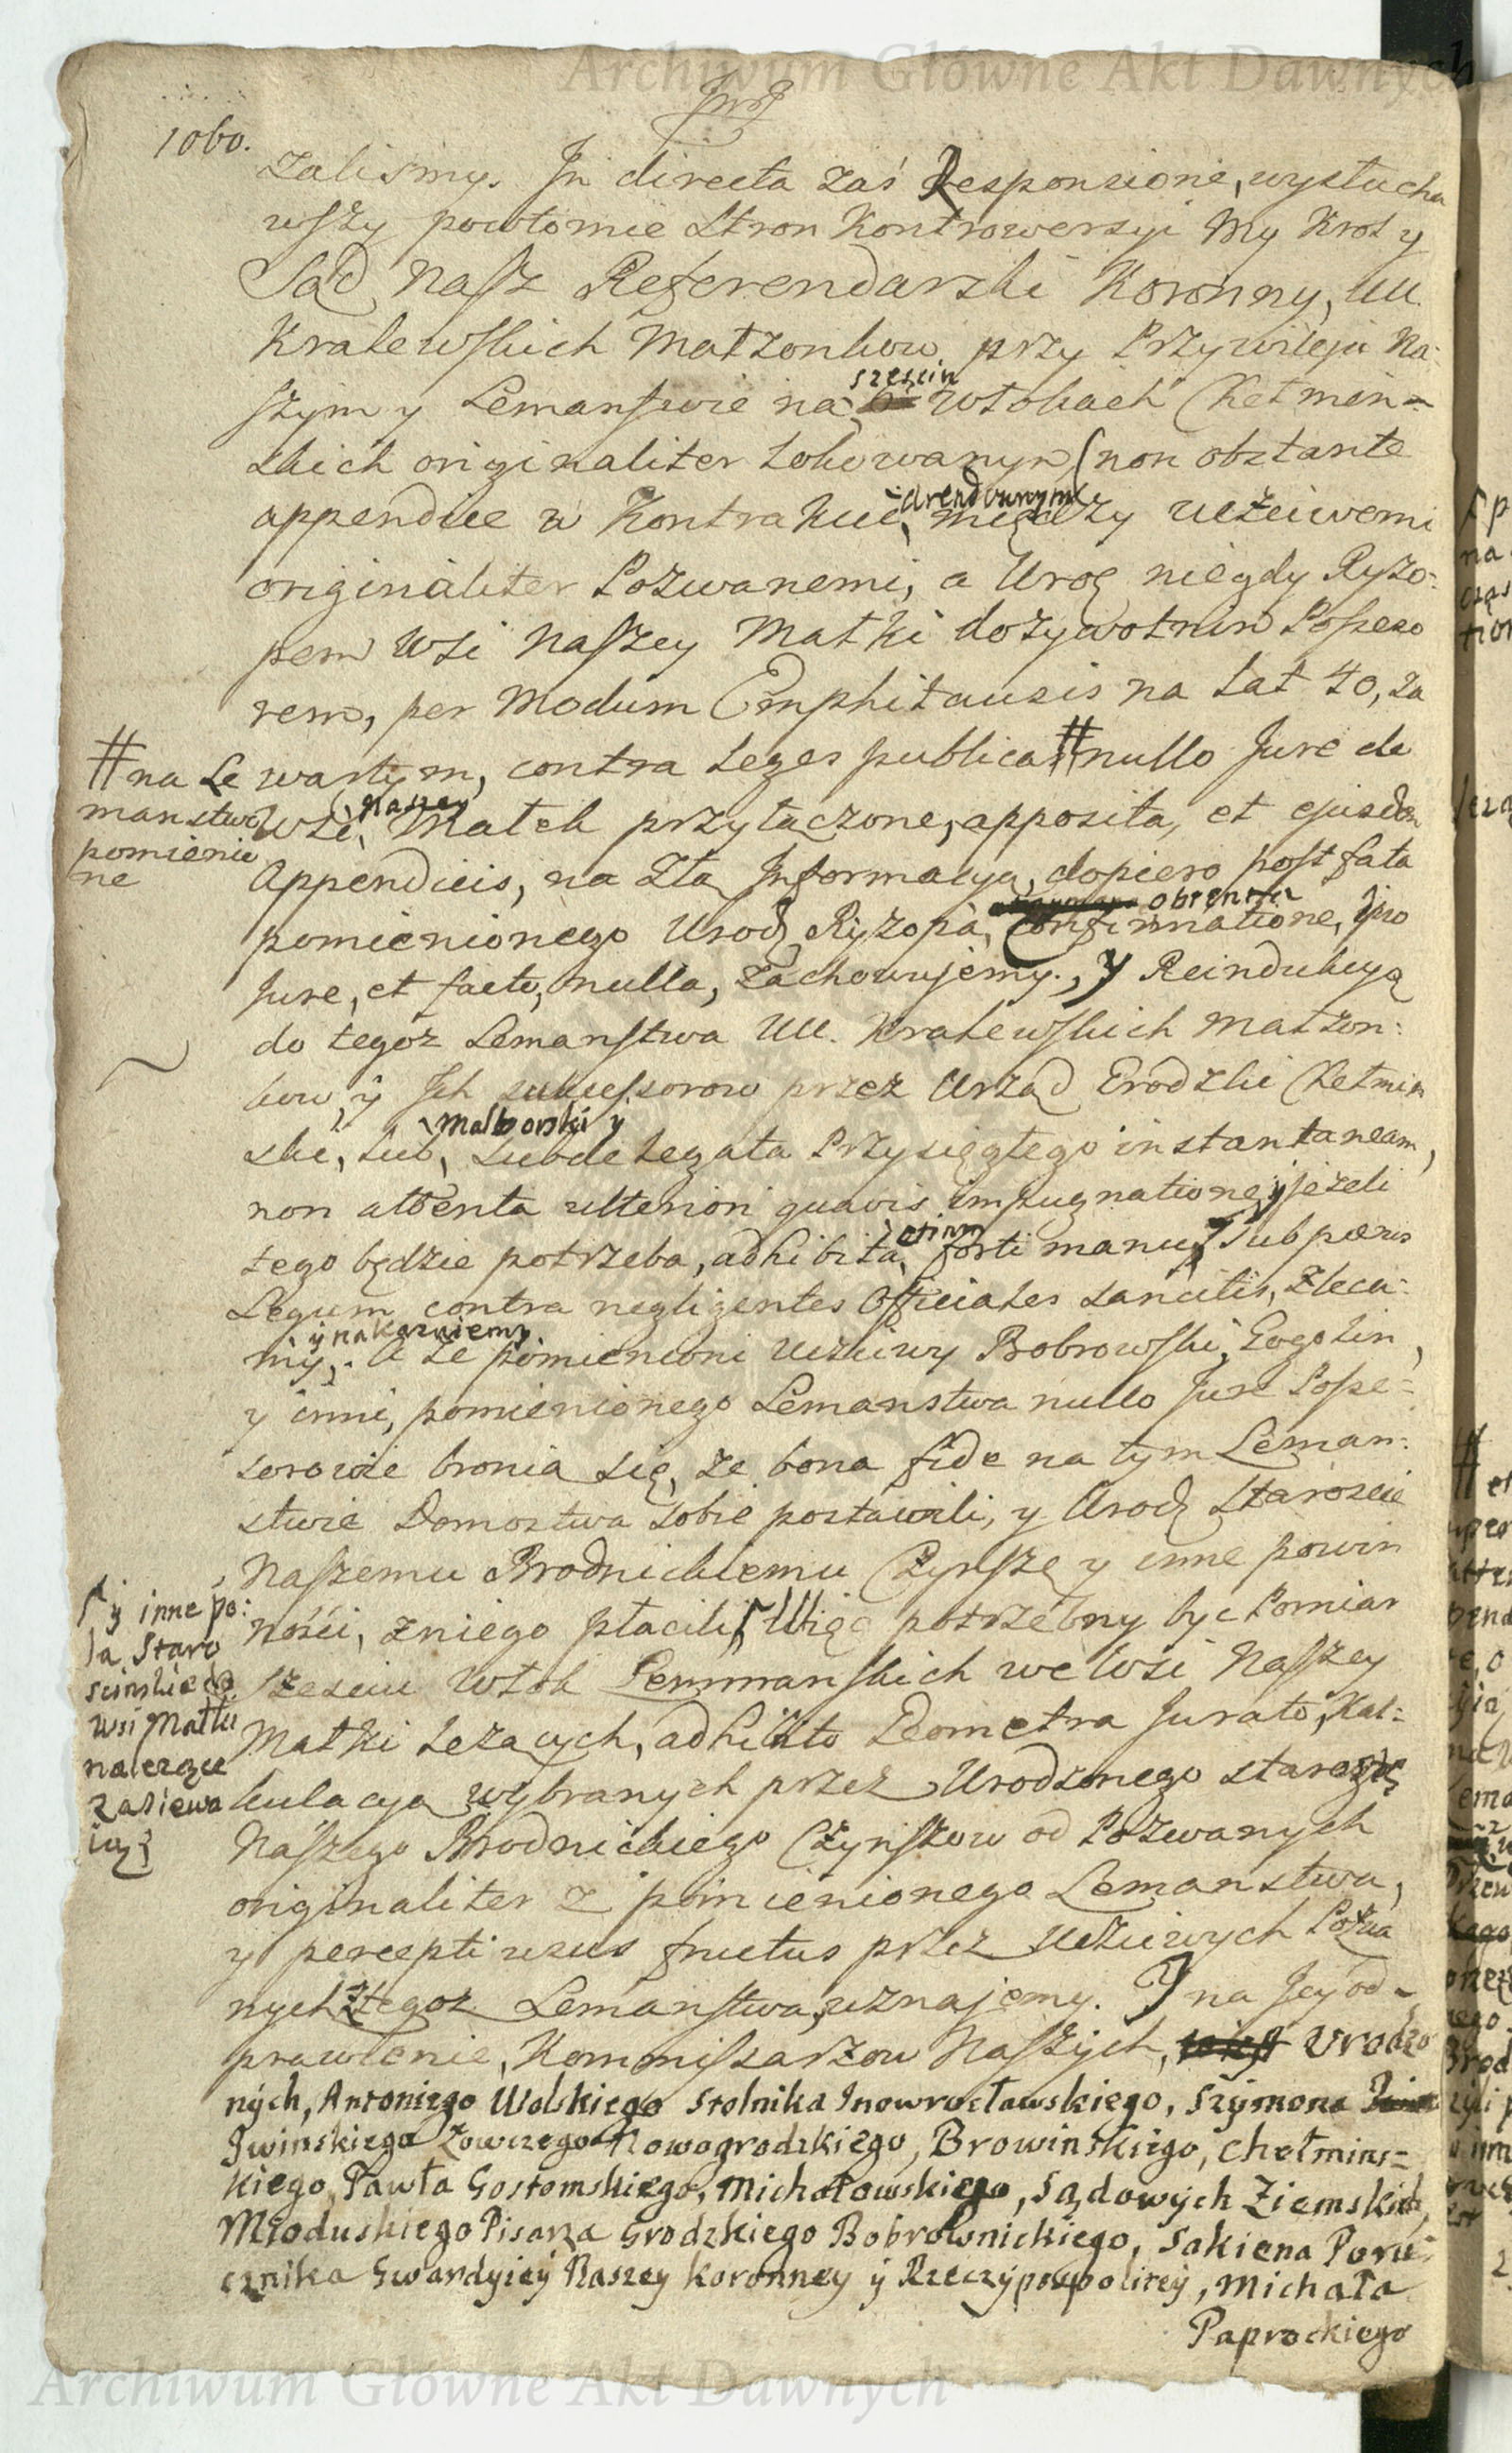 Archiwum Główne Akt Dawnych
1060.
zaliśmy. In directa zaś Responsione, wysłucha
wszy powtornie Stron Kontrowersyi My Krol y
Sąd Nasz Referendarski Koronny, UU.
Kralewskich Małzonkow przy Przywileju Na:
szym y Lemanstwie na sześciu Włokach Chełmin=
skich originaliter lokowanym (non obstante
appendice w Kontrakcie arendownym między ucżciwemi
originaliter Pozwanemi, a Urod niegdy Ryzo:
pem Wsi Naszey Matki dożywotnim Posseso
rem, per Modum Emphitausis na Lat 40, za
wartym, contra Leges publicas # nullo Jure de
# na Le
manstwo
pomienio
ne
Wsi Naszey Matek przytaczone, apposita, et ejusdem
Appendicis, na Złą Informacyą, dopiero post fata
pomienionego Urod Ryzopa, obtenta Confirmatione, ipso
Jure, et facto, nulla, zachowujemy., y Reindukcyą
do tegoz Lemanstwa UU. Kralewskich Małzon:
kow, y Ich sukcessorow przez Urząd Grodzki Chełmin
ski, lub, Malborski y Subdelegata Przysięgłego instantaneam,
non attenta ulteriori quavis impugnatione, y jeżeli
tego będzie potrzeba, adhibita, etiam forti manu, sub pœnis
Legum contra negligentes Officiales sancitis, zleca:
my, y nakazuiemy. A ze pomienioni Uczciwy Bobrowski, Gogolin,
y inni, pomienionego Lemanstwa nullo Jure Posse:
sorowie bronią się, ze bona fide na tym Leman:
stwie Domostwa sobie postawili, y Urod Staroscie
Naszemu Brodnickiemu Czynsze y inne powin
ności, z niego płacili, Więc potrzebny byc Pomiar
y inne po:
la Staro
scinskie do
wsi Matki
należące
zasiewa
ią;
sześciu Włok Lemmanskich we Wsi Naszey
Matki Leżących, adhibito Geometra Jurato, Kal:
kulacya wybranych przez Urodzonego starostę
Naszego Brodnickiego Czynszow od Pozwanych
originaliter z pomienionego Lemanstwa,
y percepti usus fructus przez Uczciwych Pozwa
nych z tegoz Lemanstwa, uznajemy. I na Jey od=
prawienie, Kommissarzow Naszych, Urodzo
nych, Antoniego Wolskiego Stolnika Inowrocławskiego, Szymona
Iwinskiego Łowczego Nowogrodzkiego, Browinskiego, Chełmins=
kiego, Pawła Gostomskiego, Michałowskiego, Sądowych Ziemskich,
Młoduskiego Pisarza Grodzkiego Bobrownickiego, Sakiena Poru=
cznika Gwardyiey Naszey Koronney y Rzeczypospolitey, Michała
Paprockiego
Archiwum Główne Akt Dawnych